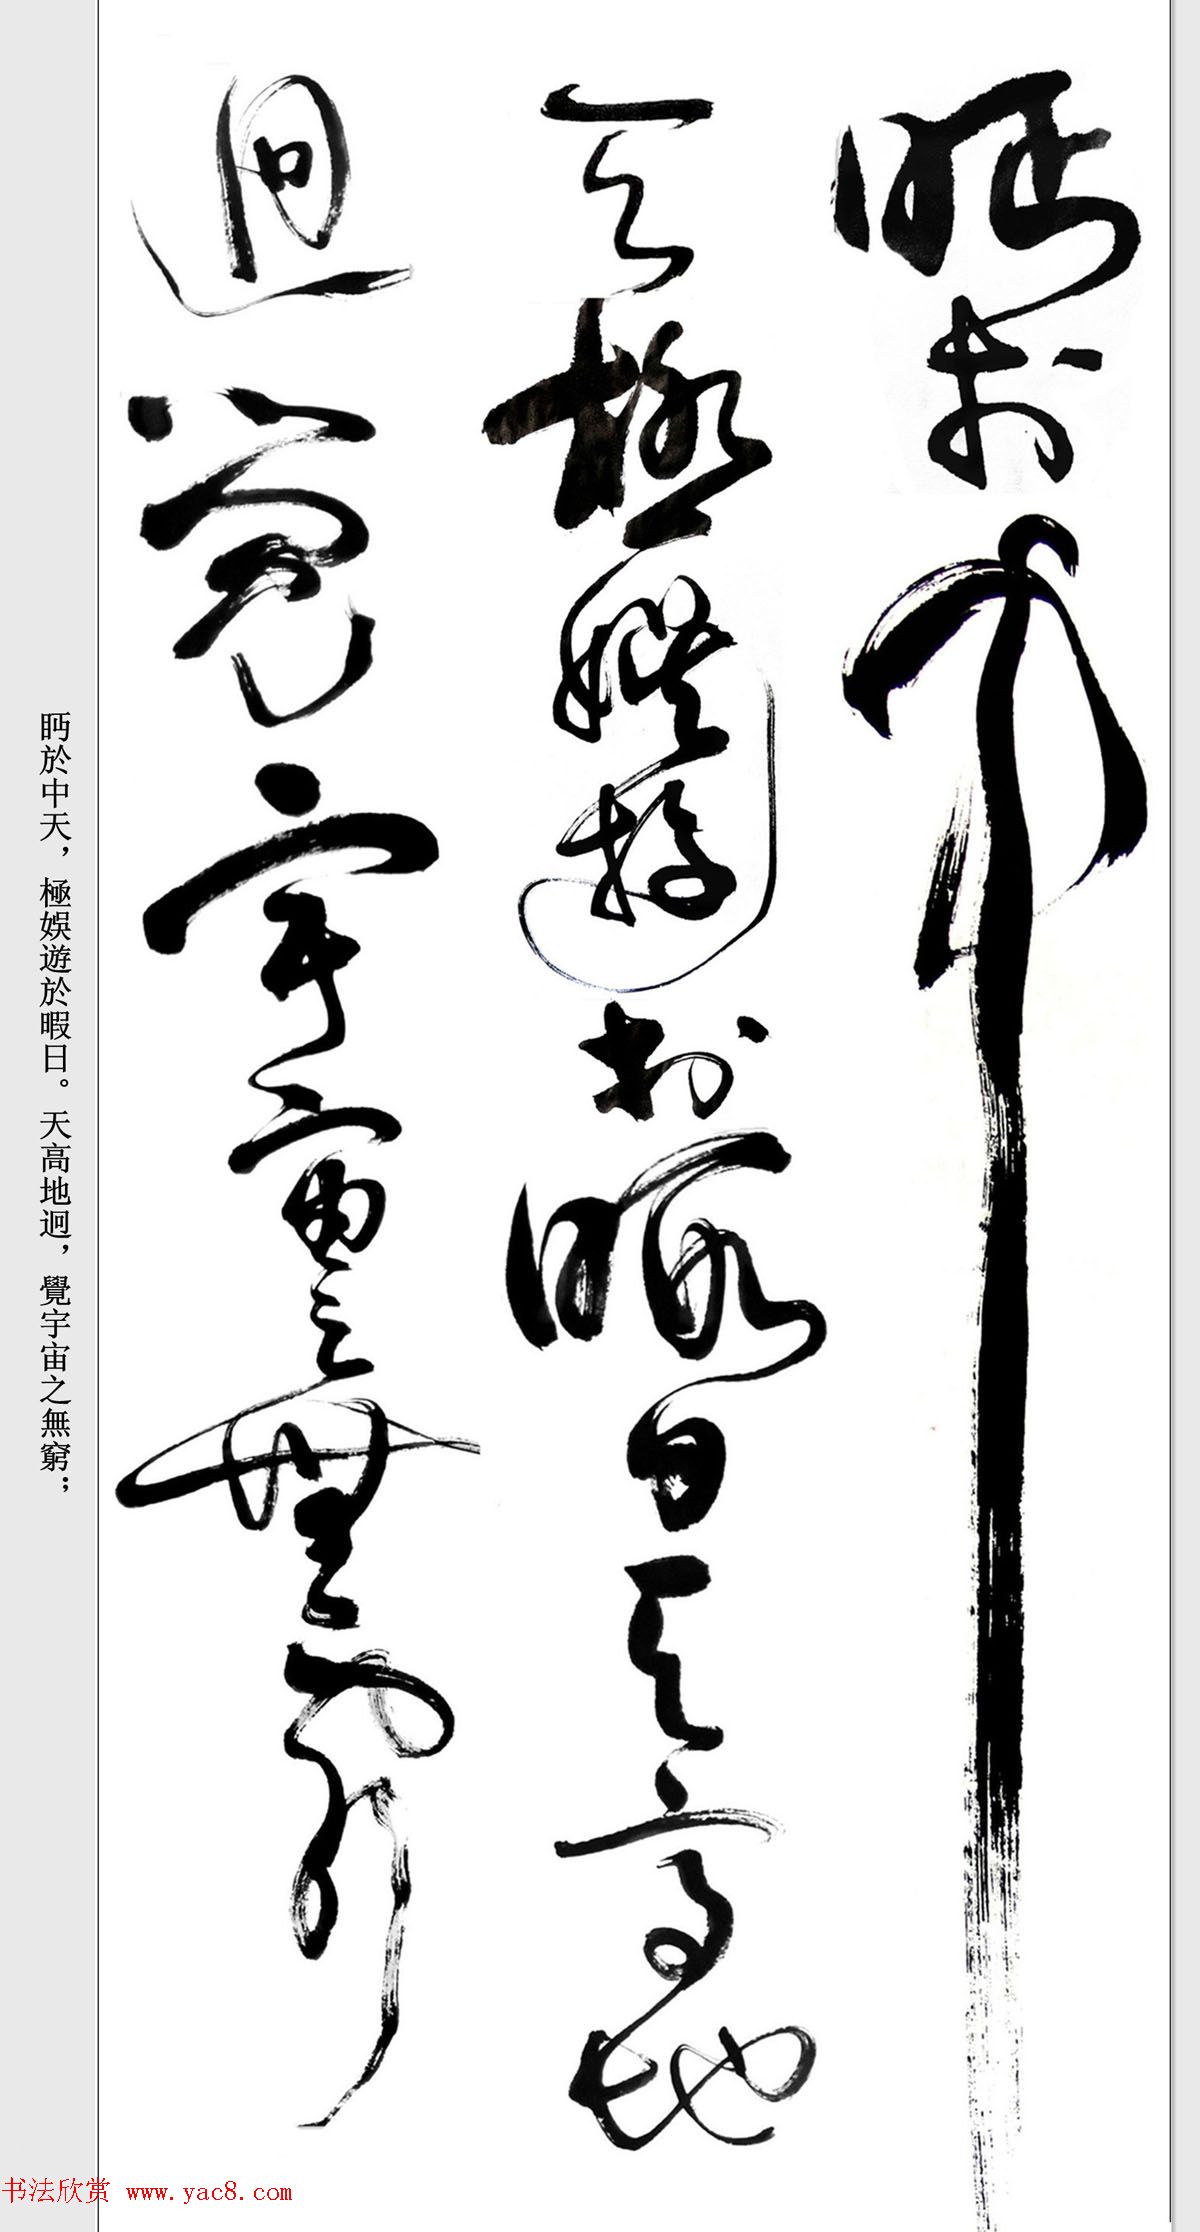 眄於中
天極娛遊於暇日天高地
迥覺宇宙之無窮
眄於中天，極娛遊於暇日。天高地迥，覺宇宙之無窮；
书法欣赏 www.yac8.com